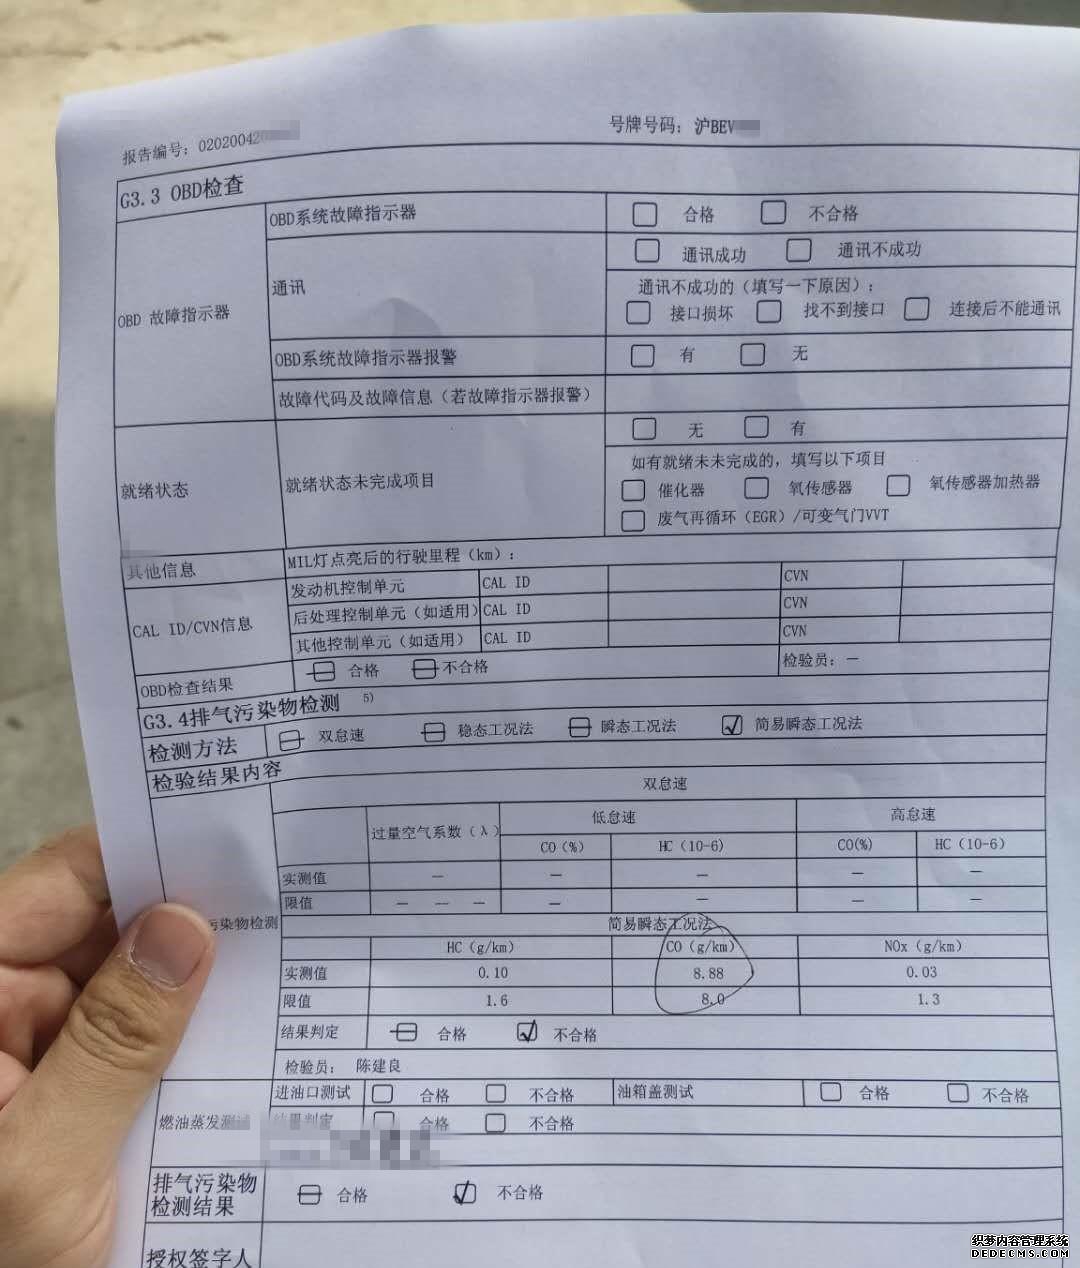 报告编号：020200420
号牌号码：沪BEV
G3.3 OBD检查
OBD 故障指示器
OBD系统故障指示器
合格 不合格
通讯
通讯成功 通讯不成功
通讯不成功的（填写一下原因）：
接口损坏 找不到接口 连接后不能通讯
OBD系统故障指示器报警
有 无
故障代码及故障信息（若故障指示器报警）
就绪状态
就绪状态未完成项目
无 有
如有就绪未未完成的，填写以下项目
催化器 氧传感器 氧传感器加热器
废气再循环（EGR）/可变气门VVT
其他信息
MIL灯点亮后的行驶里程（km）：
CAL ID/CVN信息
发动机控制单元 CAL ID CVN
后处理控制单元（如适用） CAL ID CVN
其他控制单元（如适用） CAL ID CVN
OBD检查结果 合格 不合格 检验员：—
G3.4排气污染物检测 5)
检测方法 双怠速 稳态工况法 瞬态工况法 简易瞬态工况法
检验结果内容
双怠速
过量空气系数（λ） 低怠速 高怠速
CO（%） HC（10-6） CO(%) HC（10-6）
实测值 — — — — —
限值 — — — — — — —
污染物检测
简易瞬态工况法
HC（g/km） CO（g/km） NOx（g/km）
实测值 0.10 8.88 0.03
限值 1.6 8.0 1.3
结果判定 合格 不合格
检验员： 陈建良
燃油蒸发测试
进油口测试 合格 不合格 油箱盖测试 合格 不合格
结果判定 合格 不合格
排气污染物
检测结果
合格 不合格
授权签字人
织梦内容管理系统
DEDECMS.COM